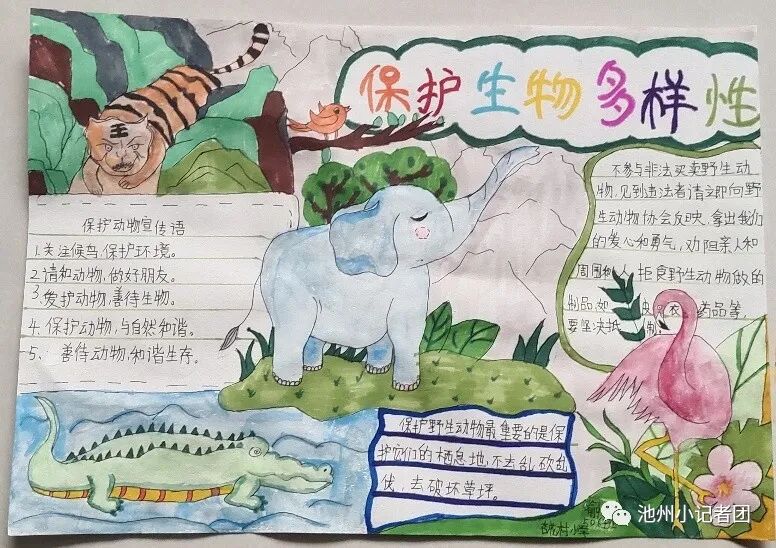 保护生物多样性
保护动物宣传语
1.关注候鸟,保护环境。
2.请和动物,做好朋友。
3.爱护动物,善待生物。
4.保护动物,与自然和谐。
5、善待动物,和谐生存。
不参与非法买卖野生动
物,见到违法者请立即向野
生动物协会反映,拿出我们
的爱心和勇气,劝阻亲人和
周围 人 拒食野生动物做的
制品,如 皮 衣 药品等,
要坚决抵制。
保护野生动物最重要的是保
护它们的栖息地,不去乱砍乱
伐,去破坏草坪。
王
池州小记者团